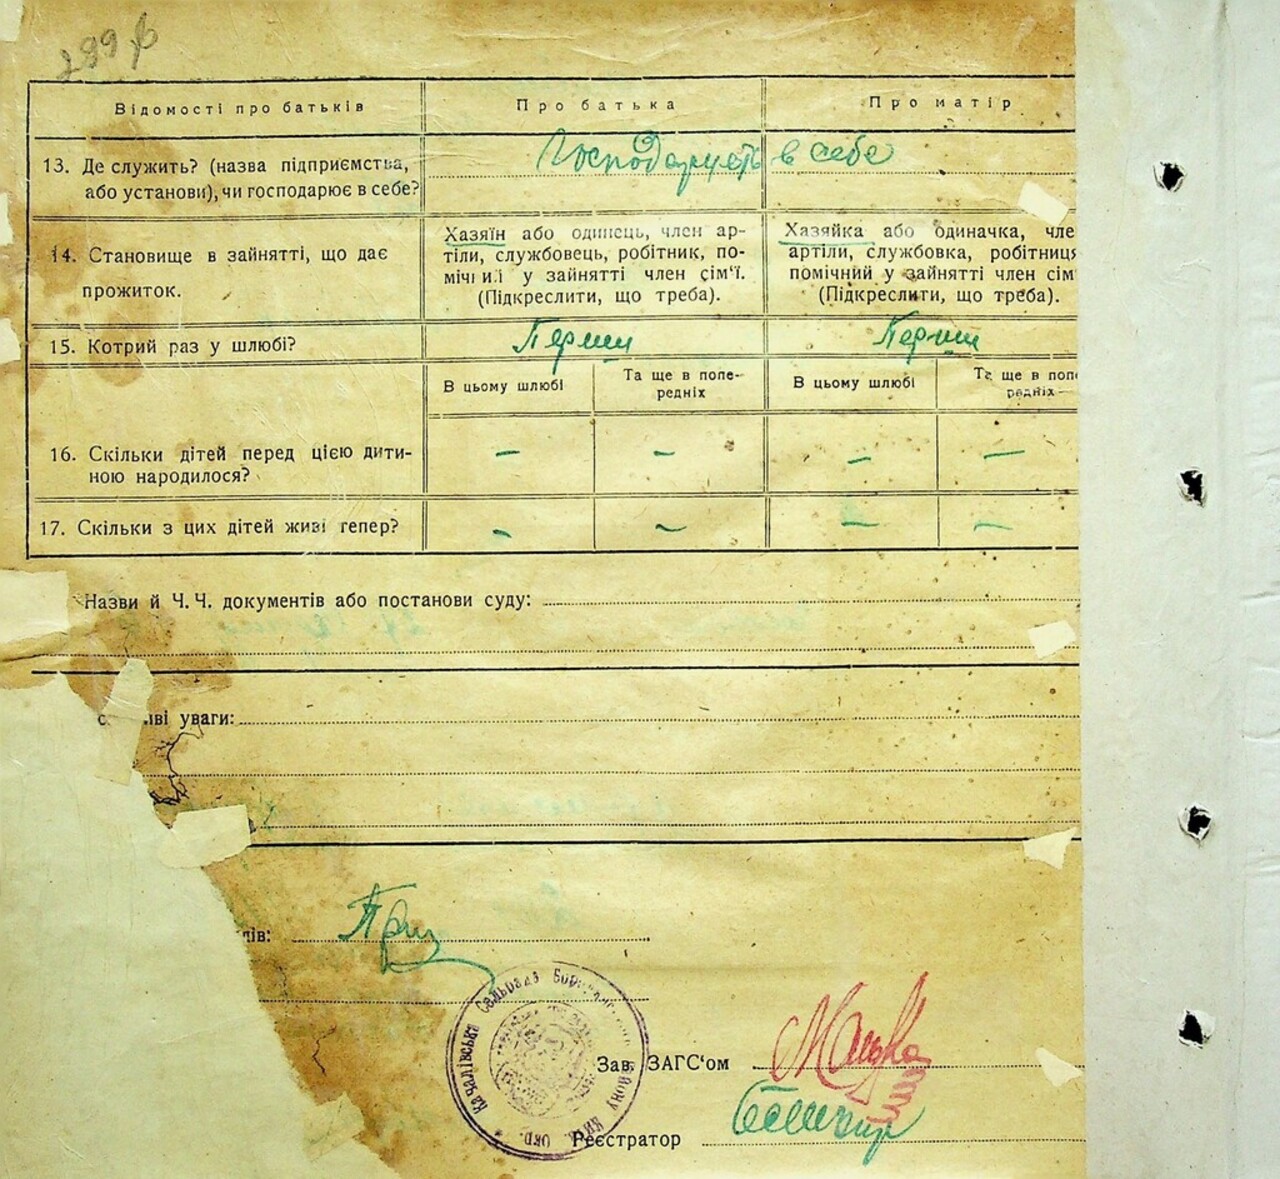 299
Відомості про батьків
Про батька
Про матір
13. Де служить? (назва підприємства,
або установи), чи господарює в себе?
Господарують в себе
14. Становище в зайнятті, що дає
прожиток.
Хазяїн або одинець, член ар-
тіли, службовець, робітник, по-
мічний у зайнятті член сім'ї.
(Підкреслити, що треба).
Хазяйка або одиначка, чле
артіли, службовка, робітниця
помічний у зайнятті член сім'
(Підкреслити, що треба).
15. Котрий раз у шлюбі?
Перши
Перши
В цьому шлюбі
Та ще в попе-
редніх
В цьому шлюбі
Та ще в попе
редніх
16. Скільки дітей перед цією дити-
ною народилося?
— — — —
17. Скільки з цих дітей живі тепер?
— — — —
Назви й Ч. Ч. документів або постанови суду:
ві уваги:
ів:
Качалівська Сельрада
окр.
Зав. ЗАГС'ом
Реєстратор